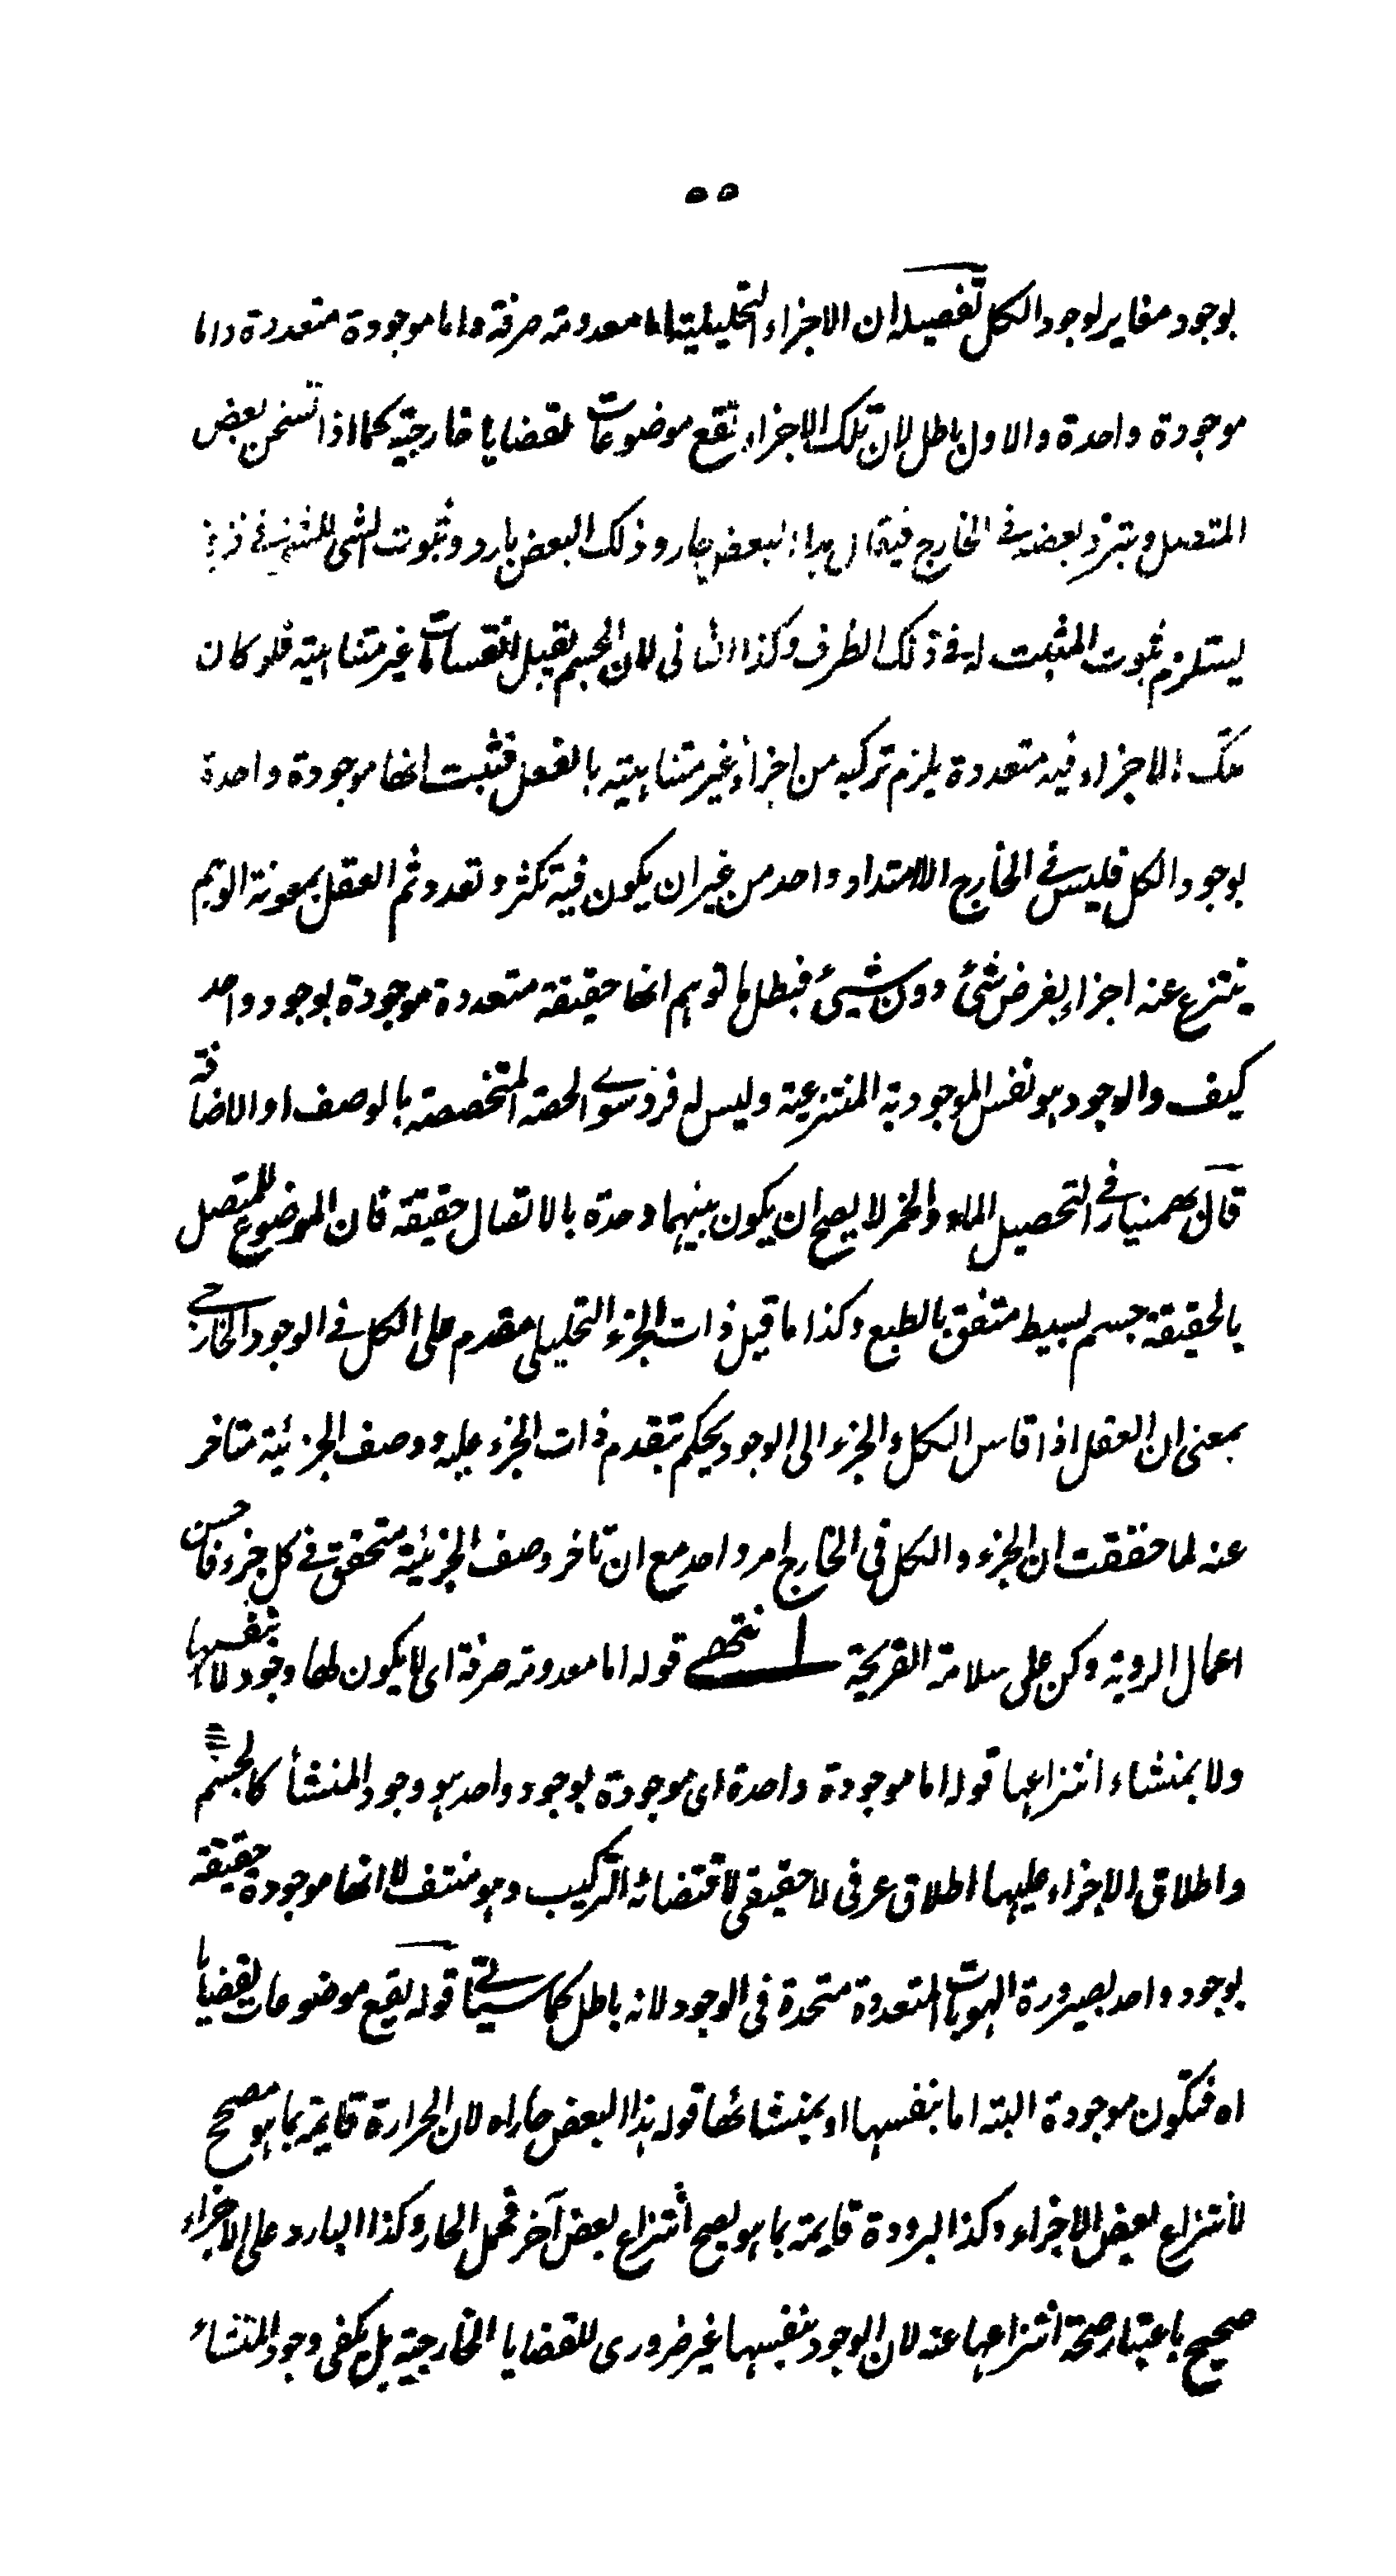 ٥٥
بوجود مغاير لوجود الكل تفصيله ان الاجزاء التحليلية اما معدومة صرفة واما موجودة متعددة واما
موجودة واحدة والاول باطل لان تلك الاجزاء تقع موضوعات لقضايا خارجية كما اذا تسخن بعض
المتصل وتبرد بعضه في الخارج فيقال هذا البعض حار وذلك البعض بارد وثبوت الشئ للشئ في ظرف
يستلزم ثبوت المثبت له في ذلك الظرف وكذا الثاني لان الجسم يقبل انقسامات غير متناهية فلو كان
تلك الاجزاء فيه متعددة يلزم تركبه من اجزاء غير متناهية بالفعل فثبت انها موجودة واحدة
بوجود الكل فليس في الخارج الا امتداد واحد من غير ان يكون فيه تكثر وتعدد ثم العقل بمعونة الوهم
ينتزع عنه اجزاء بفرض شئ دون شيئ فبطل ما توهم انها حقيقة متعددة موجودة بوجود واحد
كيف والوجود هو نفس الموجودية المنتزعية وليس له فرد سوى الحصة المتخصصة بالوصف او الاضافة
قال بهمنيار في التحصيل الماء والخمر لا يصح ان يكون بينهما وحدة بالاتصال حقيقة فان الموضوع للمتصل
بالحقيقة جسم بسيط متفق بالطبع وكذا ما قيل ذات الجزء التحليلي مقدم على الكل في الوجود الخارجي
بمعنى ان العقل اذا قاس الكل والجزء الى الوجود يحكم بتقدم ذات الجزء عليه ووصف الجزئية متاخر
عنه لما حققت ان الجزء والكل في الخارج امر واحد مع ان تاخر وصف الجزئية متحقق في كل جزء فاحسن
اعمال الروية وكن على سلامة القريحة انتهى قوله اما معدومة صرفة اى لا يكون لها وجود لا بنفسها
ولا بمنشاء انتزاعها قوله اما موجودة واحدة اى موجودة بوجود واحد هو وجود المنشأ كالجسم
واطلاق الاجزاء عليها اطلاق عرفى لا حقيقى لاقتضائه التركيب وهو منتف لا انها موجودة حقيقة
بوجود واحد بصيرورة الهويات المتعددة متحدة فى الوجود لانه باطل كما سياتى قوله يقع موضوعات لقضايا
اه فتكون موجودة البتة اما بنفسها او بمنشائها قوله هذا البعض حار اه لان الحرارة قايمة بما هو مصحح
لانتزاع بعض الاجزاء وكذا البرودة قايمة بما هو يصح انتزاع بعض آخر فحمل الحار وكذا البارد على الاجزاء
صحيح باعتبار صحة انتزاعها عنه لان الوجود بنفسها غير ضرورى للقضايا الخارجية بل يكفى وجود المنشاء